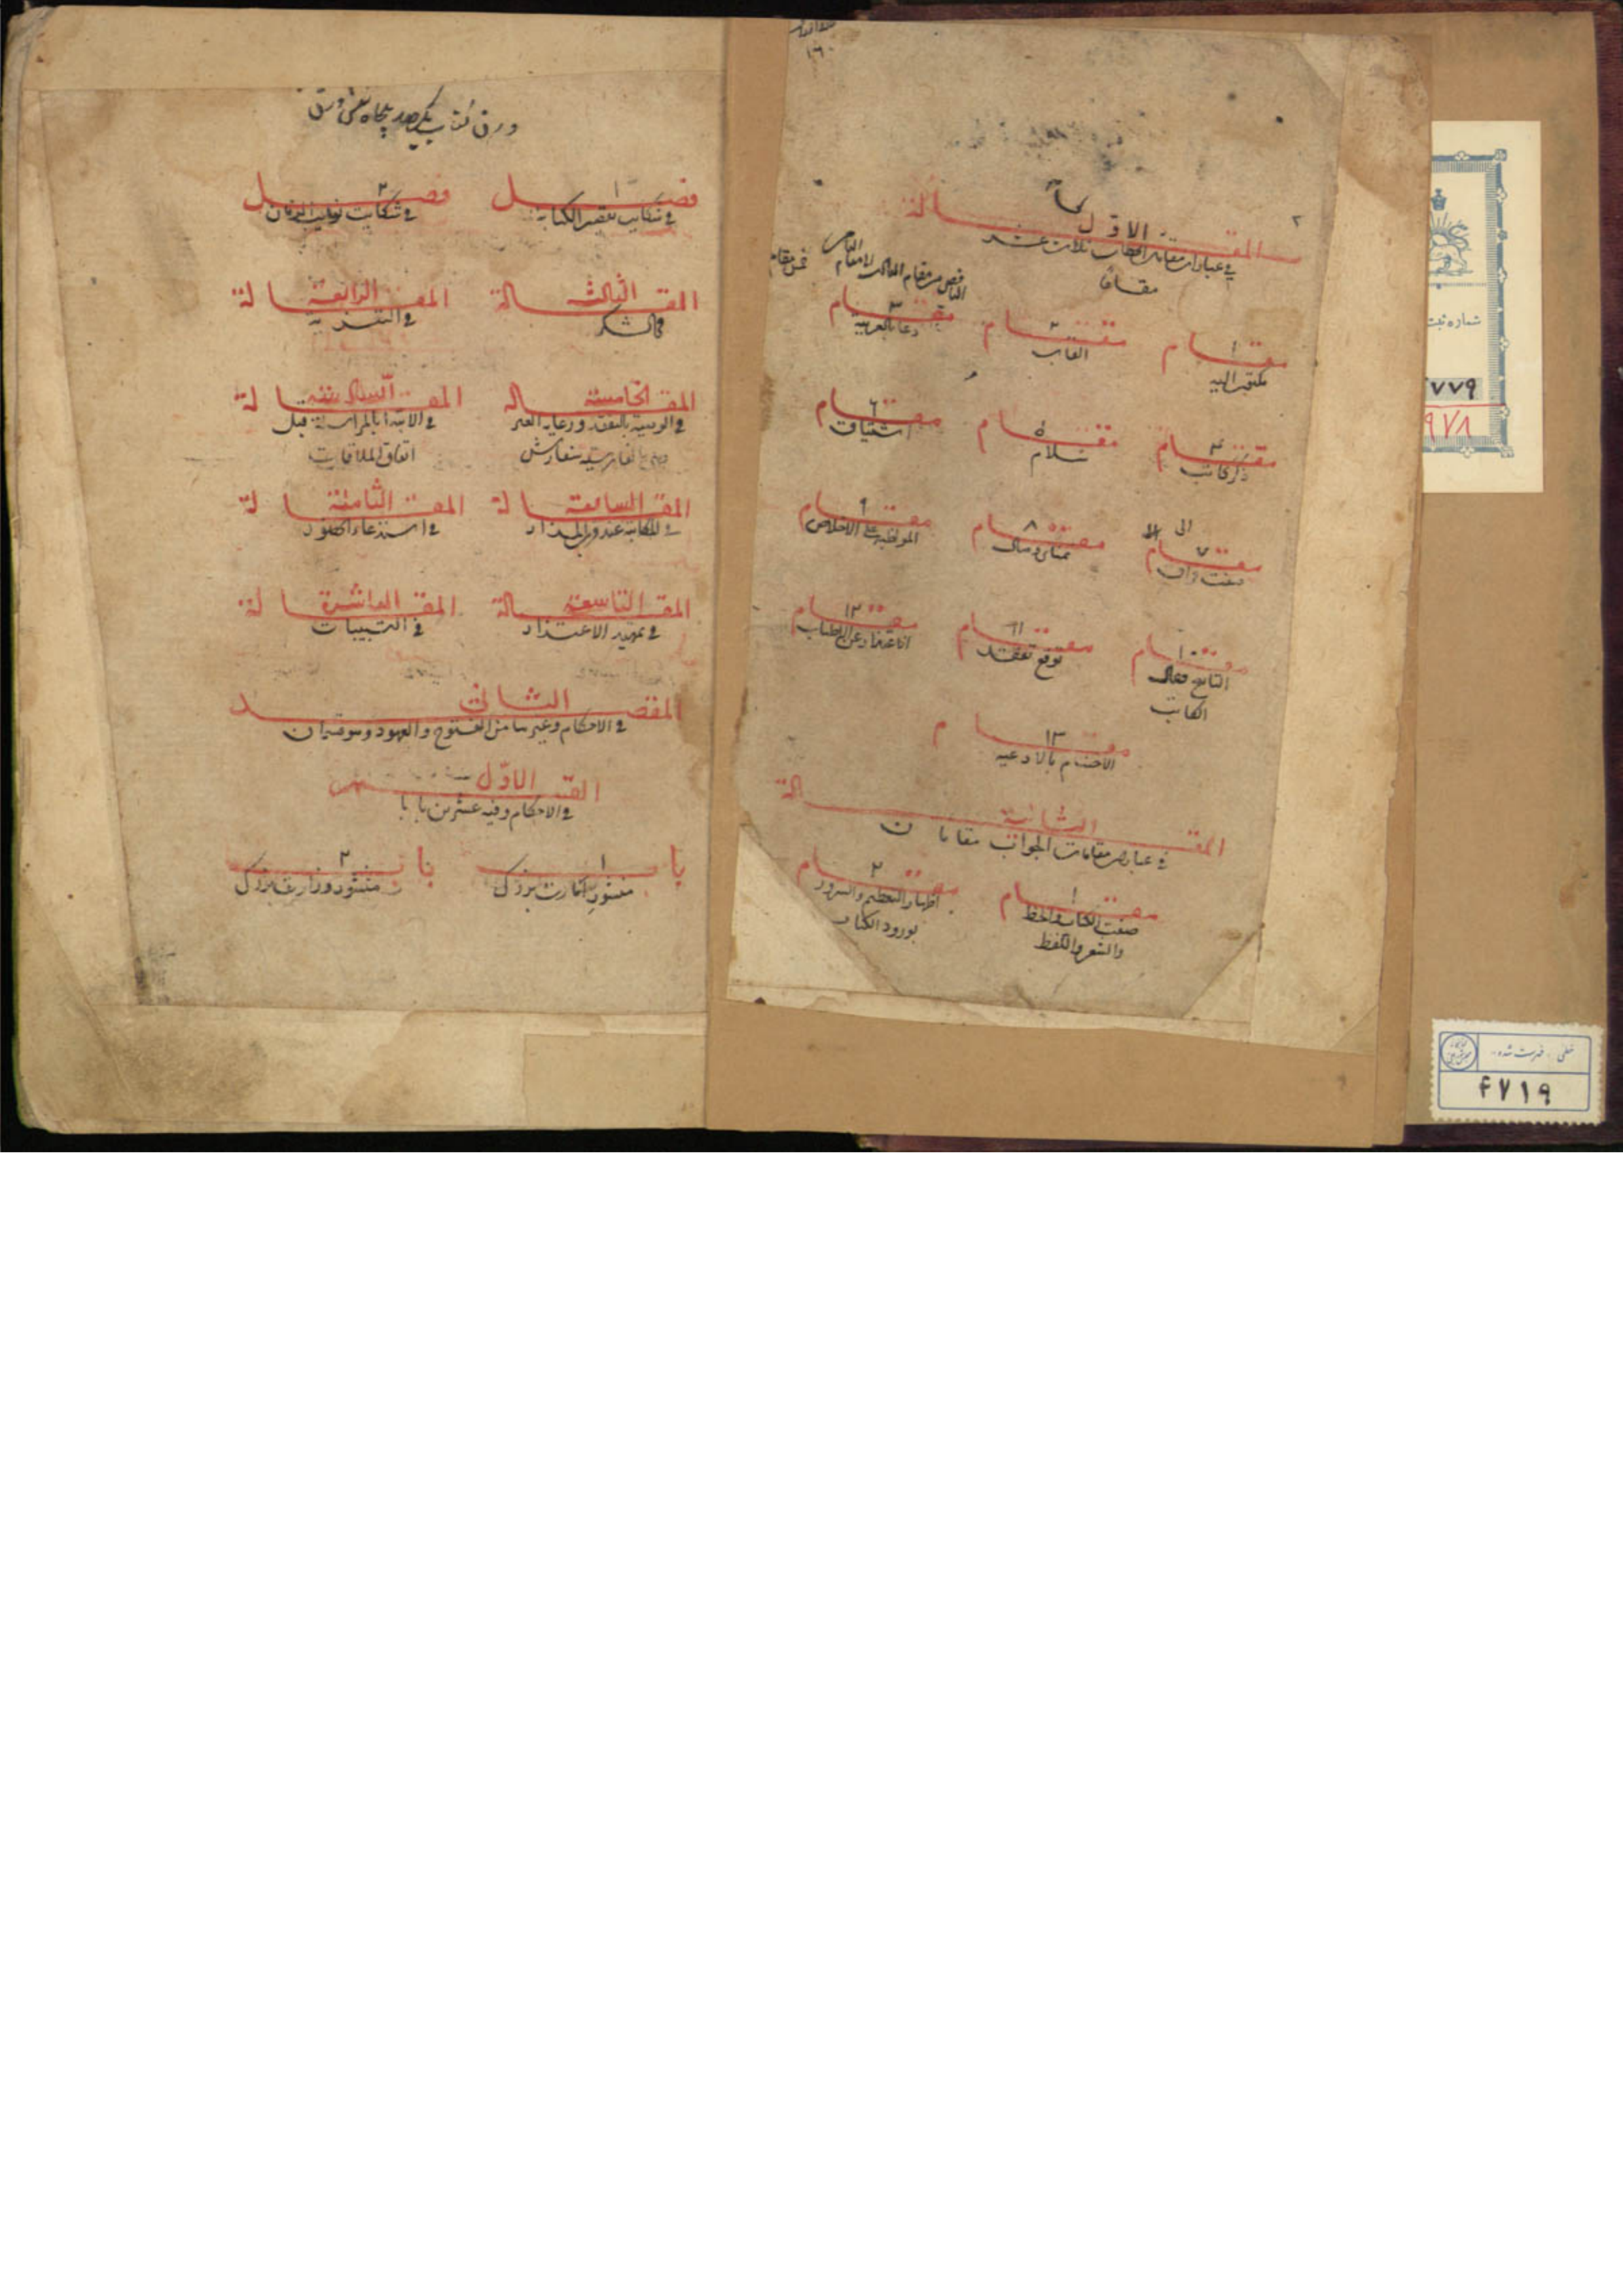 ١٦٠
٢
المقالة الاولى
في عبارات مقامات الخطاب ثلاث عشر
مقاما
الناقص من مقام الثالث الا مقام الثامن
مقام ١
مكتوب اليه
مقام ٢
القاب
مقام ٣
دعا بالعربية
مقام ٤
ذكر كاتب
مقام ٥
سلام
مقام ٦
اشتياق
الى
مقام ٧
صفت فراق
مقام ٨
تمناى وصال
مقام ٩
المواظبة على الاخلاص
مقام ١٠
الكاتب
مقام ١١
توقع تفقد
مقام ١٢
عن الاطناب
مقام ١٣
الاختتام بالادعيه
المقالة الثانية
في عبارات مقامات الجواب مقامان
مقام ١
صفت الكتاب والخط
والشعر واللفظ
مقام ٢
اظهار التعظيم والسرور
بورود الكتاب
ورق كتاب يكصد پنجاه شش ورق
فصل ١
في شكايت تقصير الكتابة
فصل ٢
في شكايت نوايب الزمان
المقالة الثالث
في الشكر
المقالة الرابعة
في التعزية
المقالة الخامسة
في الوصية بالتفقد ورعاية الغير
سفارش
المقالة السادسة
في الابتدا بالمراسلة قبل
اتفاق الملاقات
المقالة السابعة
في المكاتبة عند قرب المزار
المقالة الثامنة
في استدعاء الحضور
المقالة التاسعة
في تمهيد الاعتذار
المقالة العاشرة
في التسبيبات
المقصد الثاني
في الاحكام وغيرها من الفتوح والعهود وهو قسمان
القسم الاول
في الاحكام وفيه عشرين بابا
باب ١
منشور امارت بزرك
باب ٢
منشور وزارت بزرك
شماره ثبت
٧٧٩
٩٧٨
خطى - فهرست شده
۴۷۱۹